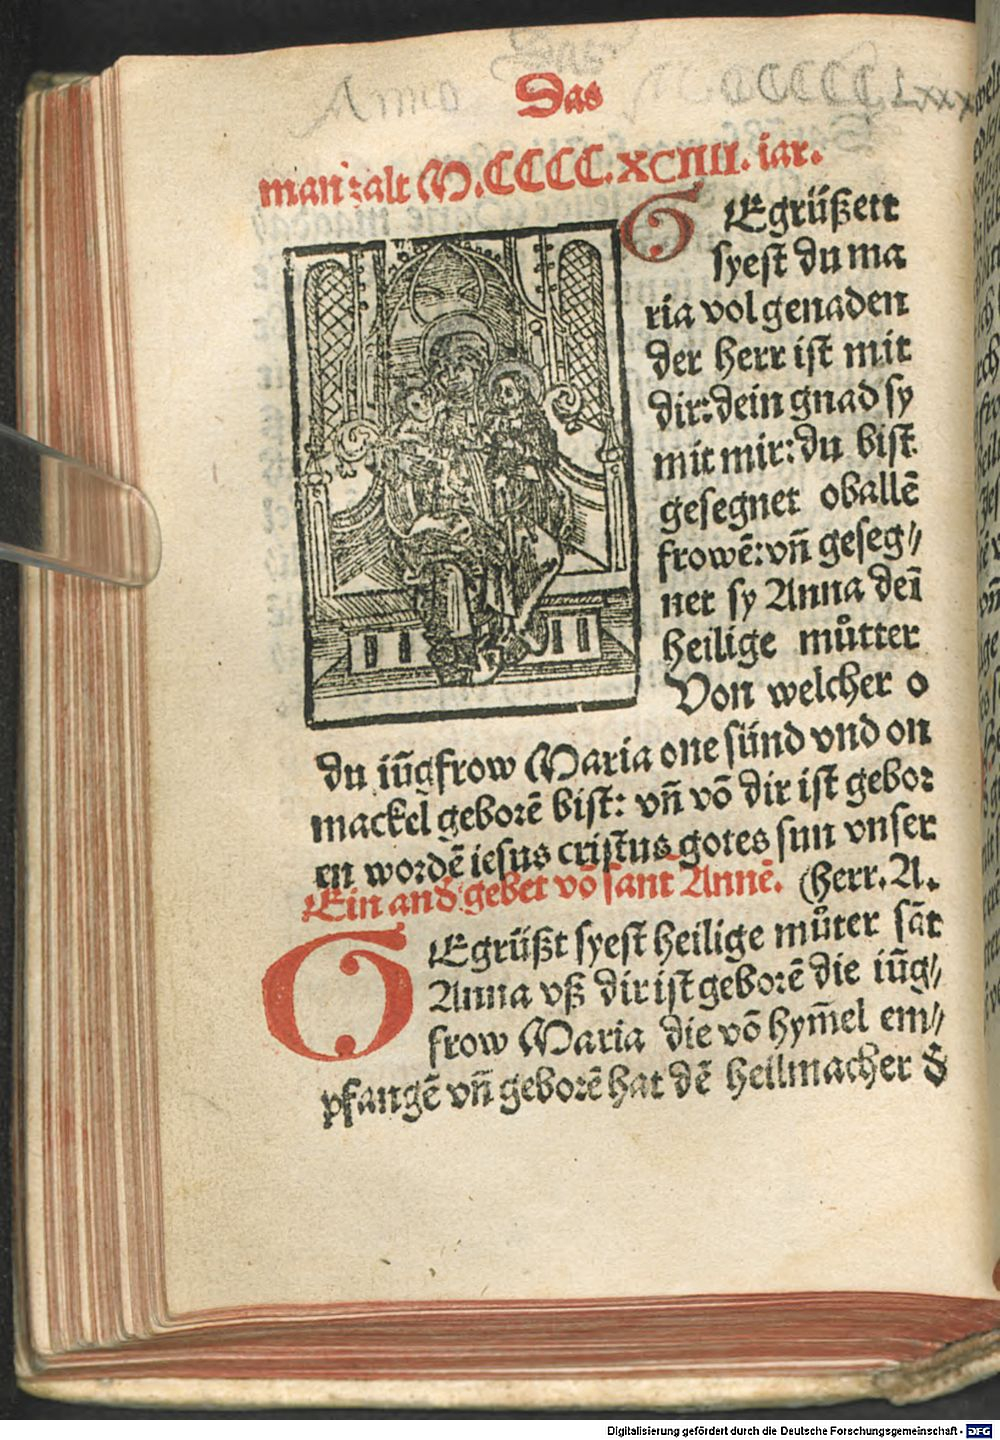 Anno MCCCCCLXXX
Das
man zalt M.CCCC.XCIIII. iar.
GEgrüßett
syest du ma
ria vol genaden
der herr ist mit
dir: dein gnad sy
mit mir: du bist
gesegnet oballē
frowē: vn̄ geseg⸗
net sy Anna deī
heilige můtter
Von welcher o
du iūgfrow Maria one sünd vnd on
mackel geborē bist: vn̄ vō dir ist gebor
en wordē iesus cristus gotes sun vnser
Ein and gebet vō sant Annē. (herr. A.
GEgrüßt syest heilige můter sāt
Anna vß dir ist geborē die iūg⸗
frow Maria die vō hym̄el em⸗
pfangē vn̄ geborē hat dē heilmacher d̄
Digitalisierung gefördert durch die Deutsche Forschungsgemeinschaft - DFG